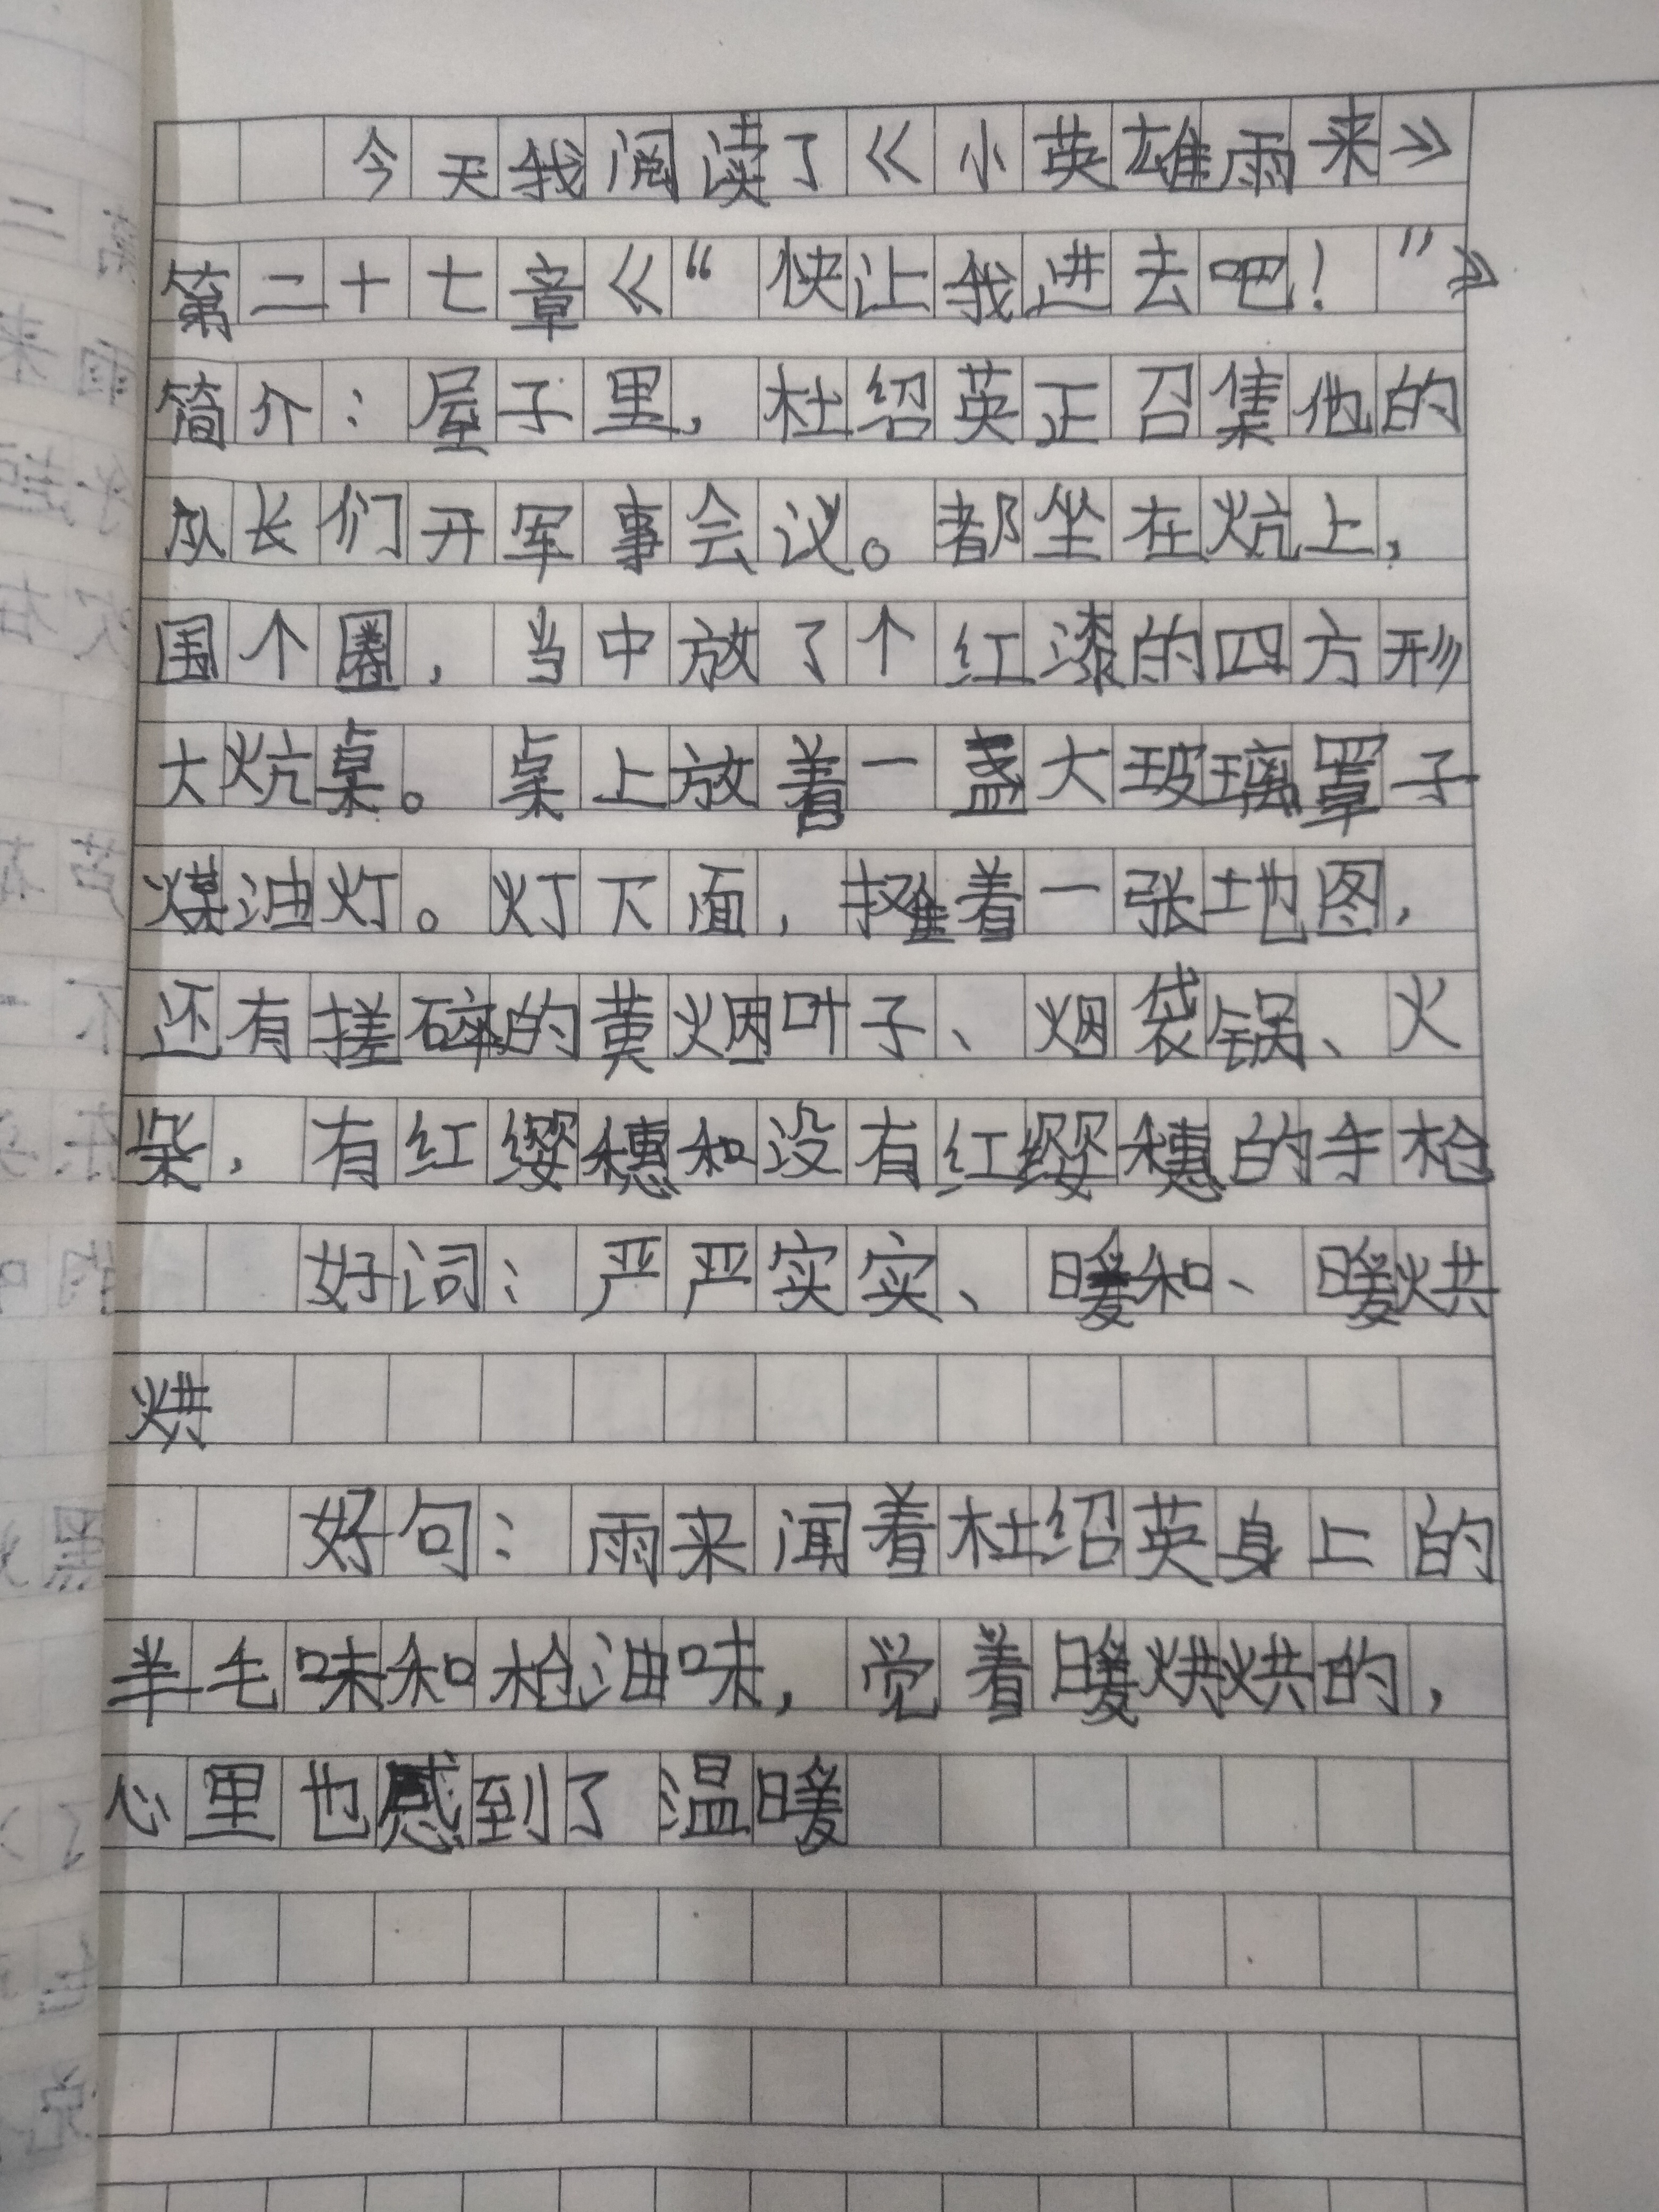 今天我阅读了《小英雄雨来》
第二十七章《“快让我进去吧！”》
简介：屋子里，杜绍英正召集他的
队长们开军事会议。都坐在炕上，
围个圈，当中放了个红漆的四方形
大炕桌。桌上放着一盏大玻璃罩子
煤油灯。灯下面，摊着一张地图，
还有搓碎的黄烟叶子、烟袋锅、火
柴，有红缨穗和没有红缨穗的手枪
好词：严严实实、暖和、暖烘
烘
好句：雨来闻着杜绍英身上的
羊毛味和枪油味，觉着暖烘烘的，
心里也感到了温暖